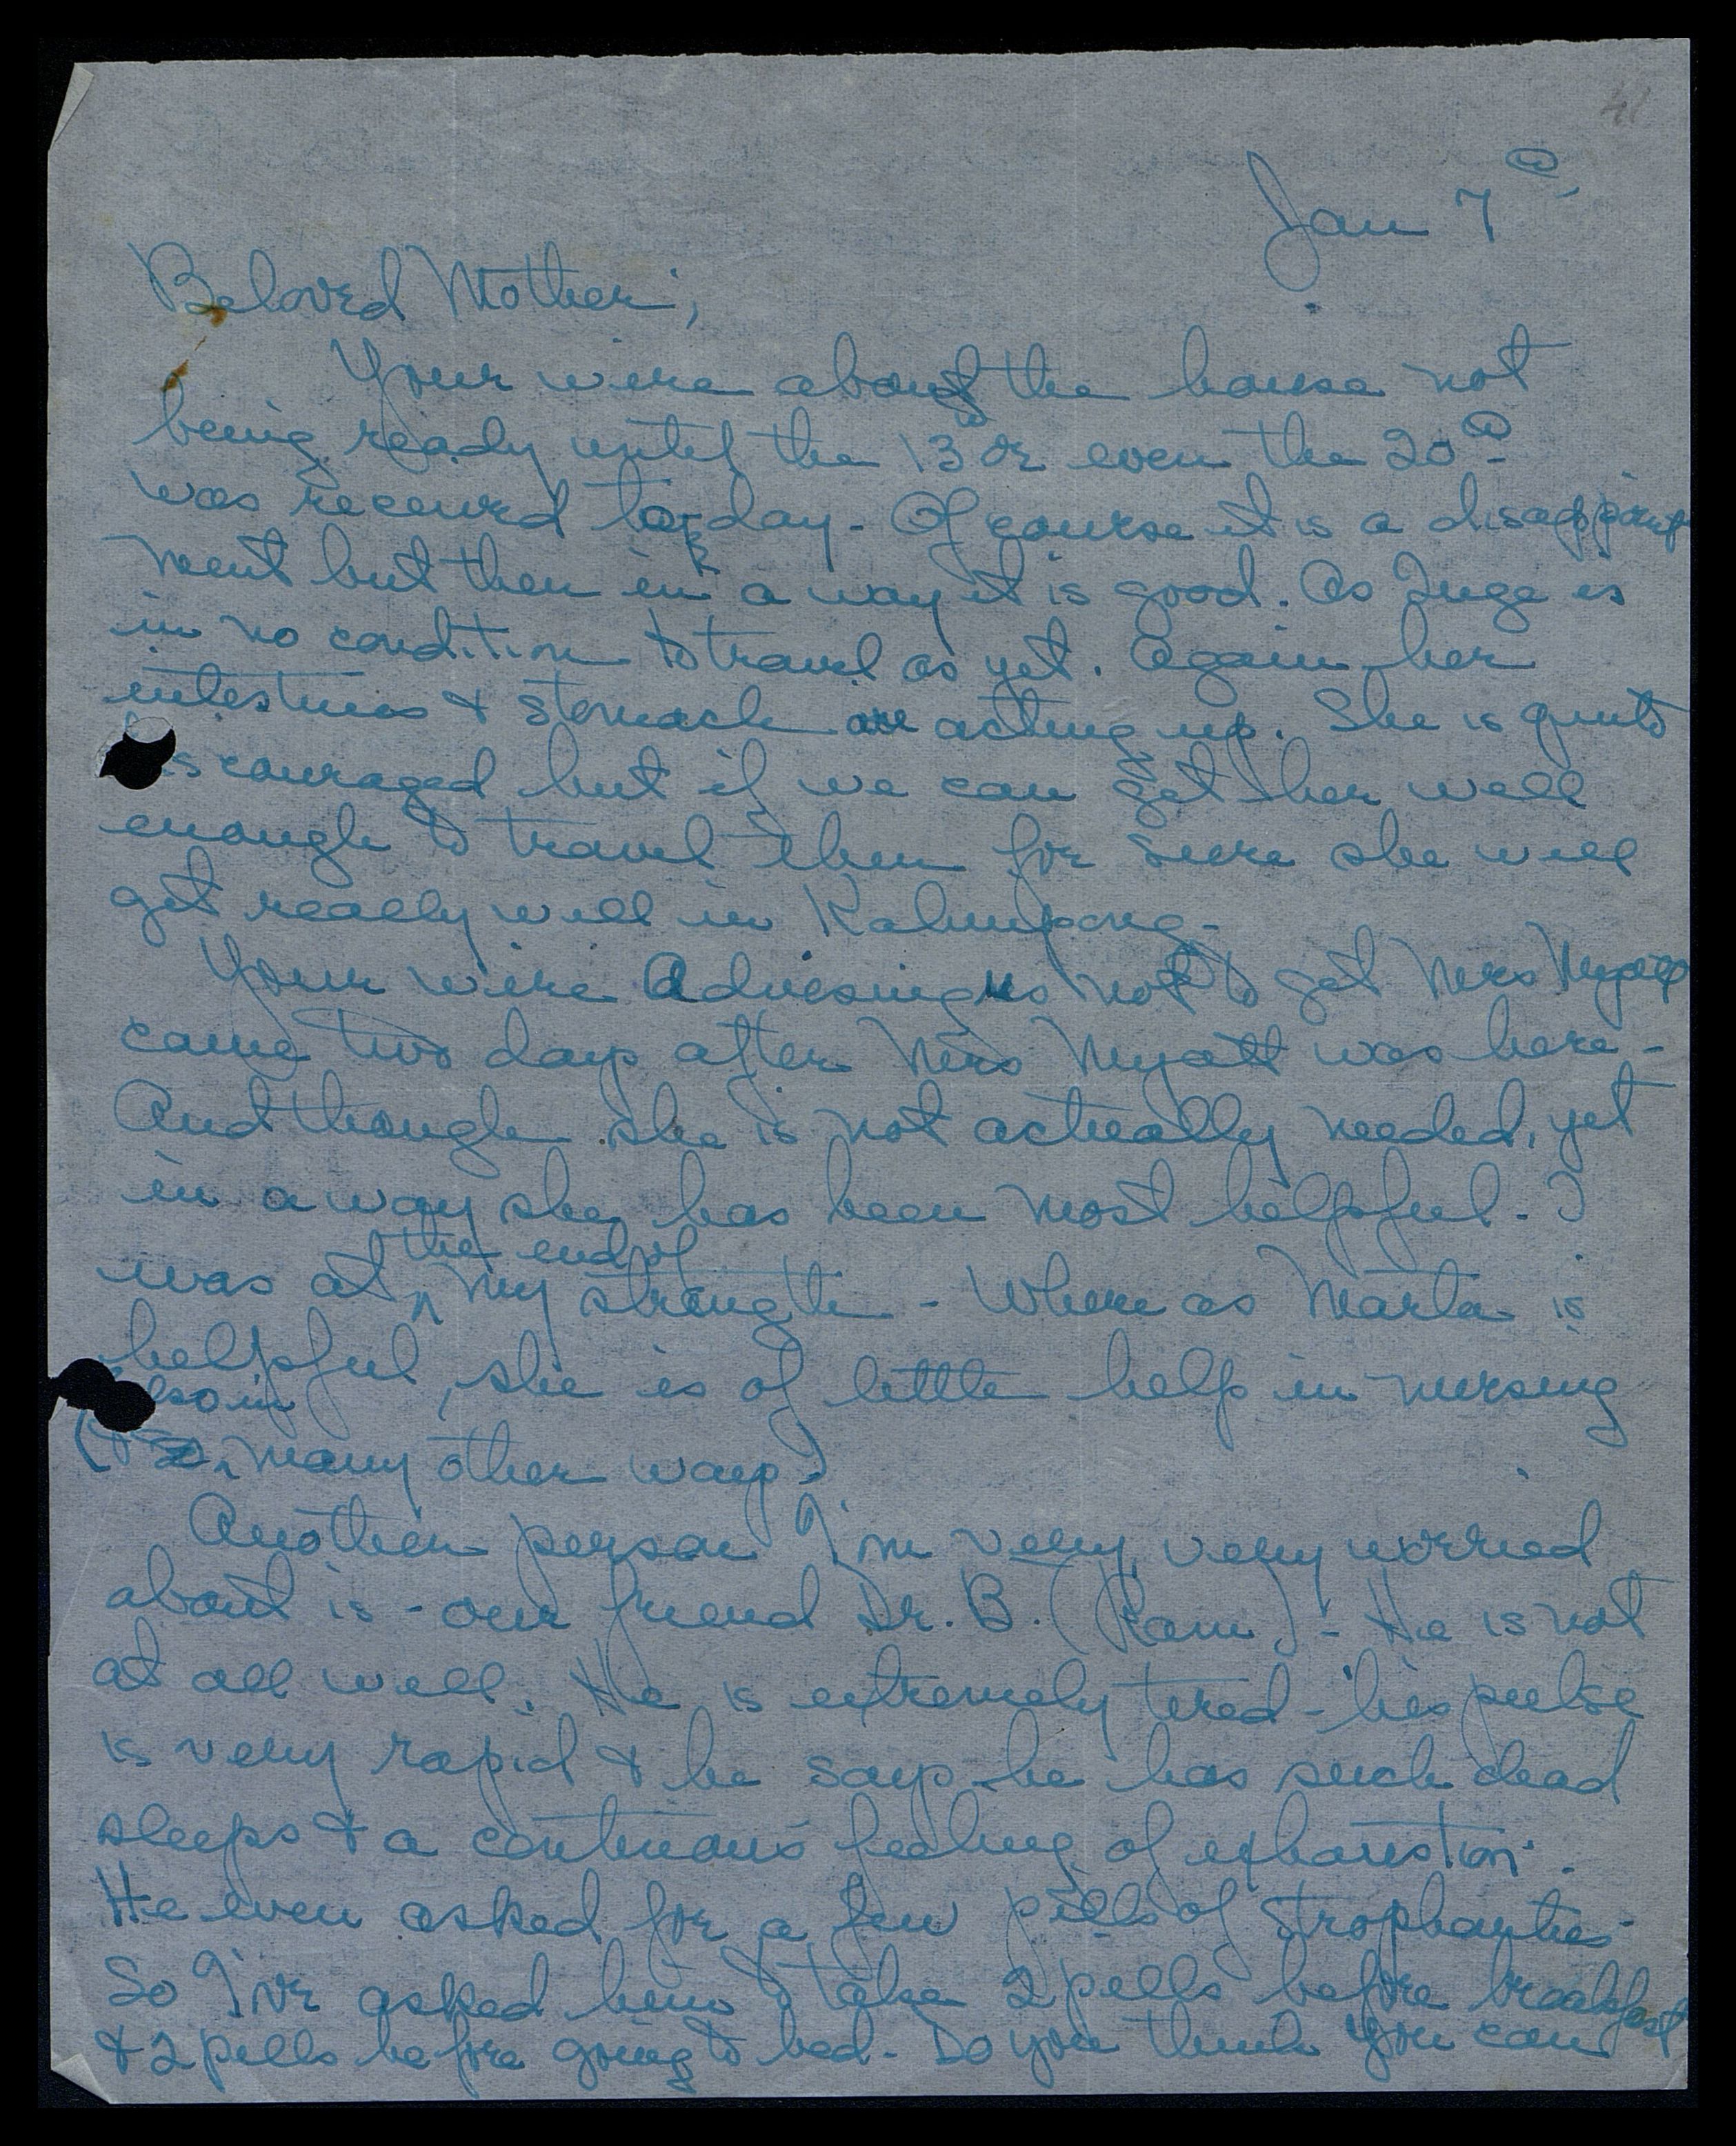 41
Jan 7th,
Beloved Mother,
Your wire about the house not
being ready until the 13th or even the 20th -
was received to-day - Of course it is a disappoint
ment but then in a way it is good. As Inge is
in no condition to travel as yet. Again her
intestines & stomach are acting up. She is quite
iscouraged but if we can get her well
enough to travel then for sure she will
get really well in Kalimpong -
Your wire Advising us not to get Mrs Myatt
came two days after Mrs Myatt was here -
And though she is not actually needed, yet
in a way she has been most helpful - I
was at the end of my strength - Where as Marta is
helpful, she is of little help in nursing
(& also in many other ways)
Another person I'm very, very worried
about is - our friend Dr. B. (Ram) - He is not
at all well. He is extremely tired - his pulse
is very rapid & he says he has such dead
sleeps & a continuous feeling of exhaustion.
He even asked for a few pills of Strophantus -
So I've asked him to take 2 pills before breakfast
& 2 pills before going to bed - Do you think you can